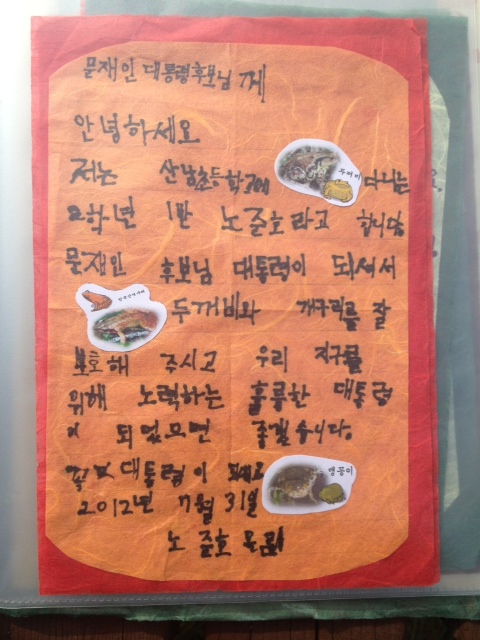 문재인 대통령후보님 께
안녕하세요
저는 산남초등학교에 두꺼비 다니는
2학년 1반 노준호라고 합니다
문재인 후보님 대통령이 되셔서
두꺼비와 개구리를 잘
보호해 주시고 우리 지구를
위해 노력하는 훌륭한 대통령
이 되었으면 좋겠습니다.
꼭 대통령이 되세요
맹꽁이
2012년 7월 31일
노준호 올림